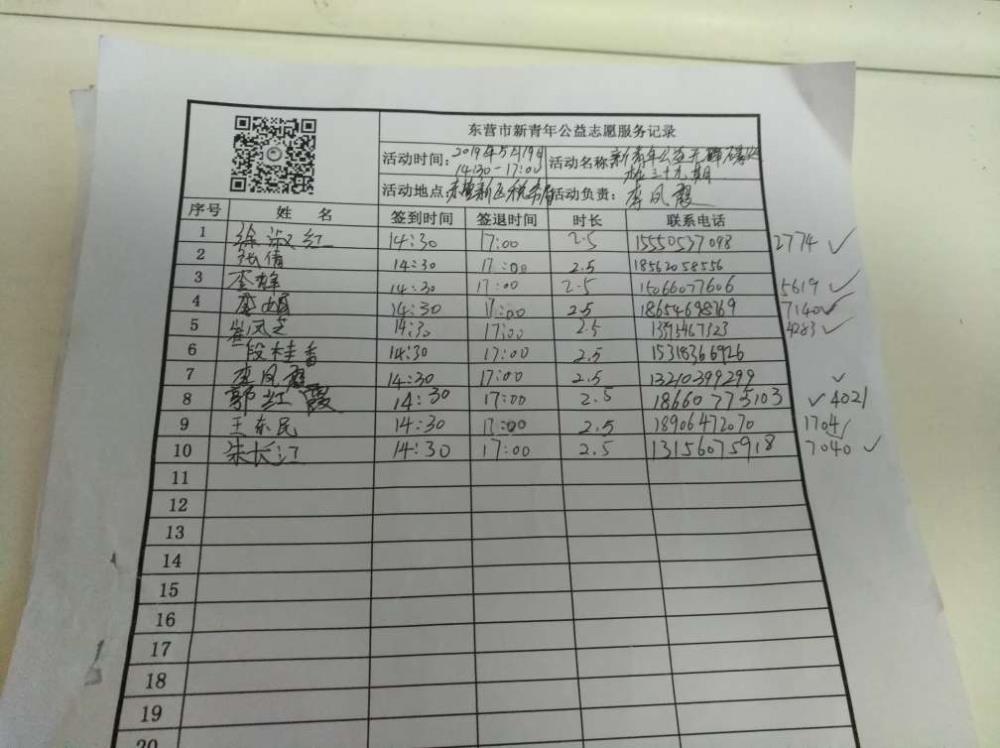 东营市新青年公益志愿服务记录
活动时间: 2019年5月19日 14:30-17:00 活动名称 新青年公益
三十九期
活动地点 活动负责: 李凤霞
序号 姓 名 签到时间 签退时间 时长 联系电话
1 徐淑红 14:30 17:00 2.5 15550537098 2774 ✓
2 张倩 14:30 17:00 2.5 18562058556
3 14:30 17:00 2.5 15066077606 5619 ✓
4 14:30 17:00 2.5 18654698769 7140 ✓
5 崔凤芝 14:30 17:00 2.5 4283 ✓
6 段桂香 14:30 17:00 2.5 15318366926
7 李凤霞 14:30 17:00 2.5 13210399299 ✓
8 郭红霞 14:30 17:00 2.5 18660775103 ✓ 4021
9 王东民 14:30 17:00 2.5 18906472070 1704
10 朱长江 14:30 17:00 2.5 13156075918 7040 ✓
11
12
13
14
15
16
17
18
19
20